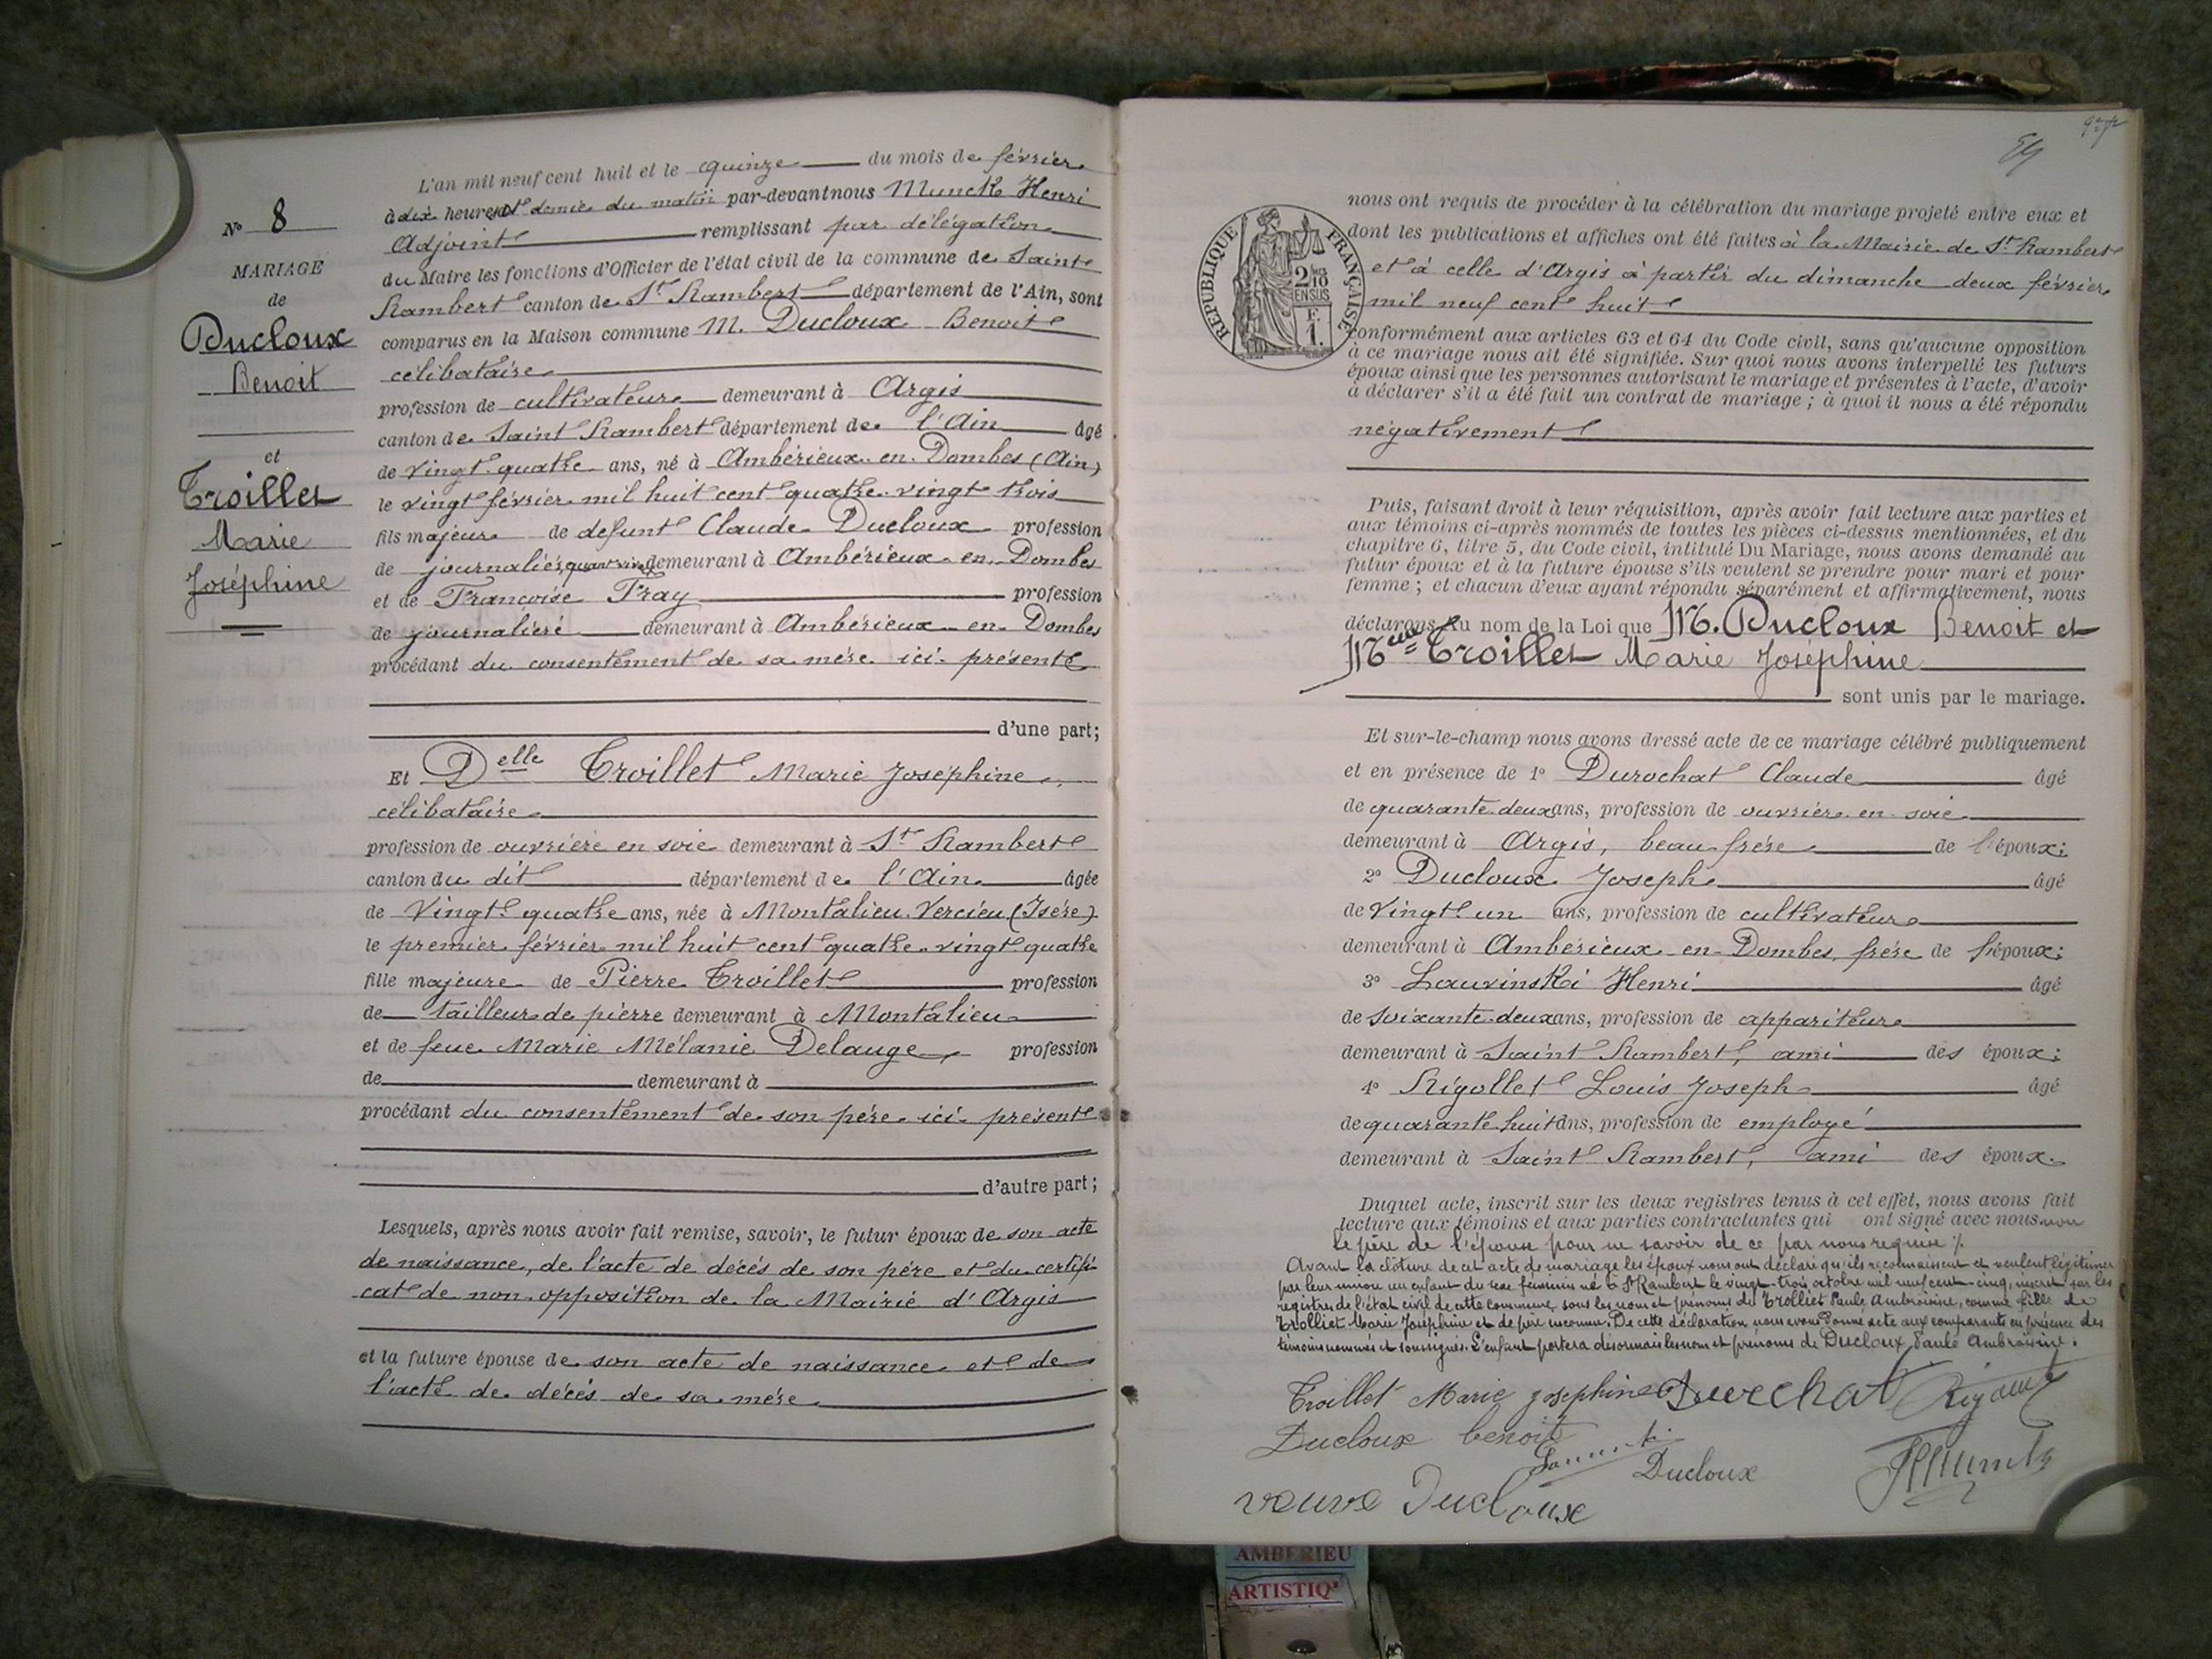 N° 8
MARIAGE
de
Ducloux
Benoit
et
Troillet
Marie
Joséphine
L'an mil neuf cent huit et le quinze du mois de février
à dix heures et demie du matin par-devant nous Munck Henri
Adjoint remplissant par délégation
du Maire les fonctions d'Officier de l'état civil de la commune de Saint
Rambert canton de St Rambert département de l'Ain, sont
comparus en la Maison commune M. Ducloux Benoit
célibataire
profession de cultivateur demeurant à Argis
canton de Saint Rambert département de l'Ain âgé
de vingt quatre ans, né à Ambérieux en Dombes (Ain)
le vingt février mil huit cent quatre vingt trois
fils majeur de défunt Claude Ducloux profession
de journalier, quand vivait demeurant à Ambérieux en Dombes
et de Françoise Fray profession
de journalière demeurant à Ambérieux en Dombes
procédant du consentement de sa mère ici présente
d'une part;
Et Delle Troillet Marie Joséphine,
célibataire
profession de ouvrière en soie demeurant à St Rambert
canton du dit département de l'Ain âgée
de vingt quatre ans, née à Montalieu Vercieu (Isère)
le premier février mil huit cent quatre vingt quatre
fille majeure de Pierre Troillet profession
de tailleur de pierre demeurant à Montalieu
et de feue Marie Mélanie Delauge profession
de demeurant à
procédant du consentement de son père ici présent
d'autre part;
Lesquels, après nous avoir fait remise, savoir, le futur époux de son acte
de naissance, de l'acte de décès de son père et du certifi
cat de non opposition de la Mairie d'Argis
et la future épouse de son acte de naissance et de
l'acte de décès de sa mère
REPUBLIQUE FRANÇAISE
2/10
EN SUS
F.
1.
nous ont requis de procéder à la célébration du mariage projeté entre eux et
dont les publications et affiches ont été faites à la Mairie de St Rambert
et à celle d'Argis à partir du dimanche deux février
mil neuf cent huit
conformément aux articles 63 et 64 du Code civil, sans qu'aucune opposition
à ce mariage nous ait été signifiée. Sur quoi nous avons interpellé les futurs
époux ainsi que les personnes autorisant le mariage et présentes à l'acte, d'avoir
à déclarer s'il a été fait un contrat de mariage; à quoi il nous a été répondu
négativement
Puis, faisant droit à leur réquisition, après avoir fait lecture aux parties et
aux témoins ci-après nommés de toutes les pièces ci-dessus mentionnées, et du
chapitre 6, titre 5, du Code civil, intitulé Du Mariage, nous avons demandé au
futur époux et à la future épouse s'ils veulent se prendre pour mari et pour
femme; et chacun d'eux ayant répondu séparément et affirmativement, nous
déclarons au nom de la Loi que M. Ducloux Benoit et
Troillet Marie Joséphine
sont unis par le mariage.
Et sur-le-champ nous avons dressé acte de ce mariage célébré publiquement
et en présence de 1° Durochat Claude âgé
de quarante deux ans, profession de ouvrier en soie
demeurant à Argis, beau frère de l'époux;
2° Ducloux Joseph âgé
de vingt un ans, profession de cultivateur
demeurant à Ambérieux en Dombes, frère de l'époux;
3° Lauvinski Henri âgé
de soixante deux ans, profession de appariteur
demeurant à Saint Rambert, ami des époux;
4° Rigollet Louis Joseph âgé
de quarante huit ans, profession de employé
demeurant à Saint Rambert, ami des époux.
Duquel acte, inscrit sur les deux registres tenus à cet effet, nous avons fait
lecture aux témoins et aux parties contractantes qui ont signé avec nous non
le père de l'épouse pour ne savoir de ce par nous requise %
Avant la clôture de cet acte de mariage les époux nous ont déclaré qu'ils reconnaissent et veulent légitimer
par leur union un enfant du sexe féminin né à St Rambert le vingt-trois octobre mil neuf cent cinq, inscrit sur les
registres de l'état civil de cette commune sous les nom et prénoms de Trolliet Paule Ambroisine, comme fille de
Trolliet Marie Joséphine et de père inconnu. De cette déclaration nous avons donné acte aux comparants en présence des
témoins nommés et soussignés. L'enfant portera désormais les nom et prénoms de Ducloux Paule Ambroisine.
Troillet Marie Josephine Durochat
Ducloux benoit
Ducloux
veuve Ducloux
AMBERIEU
ARTISTIQ